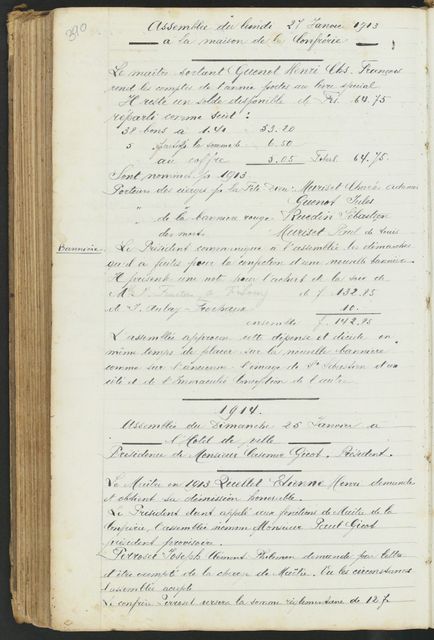 390
Assemblée du lundi 27 Janvier 1913
à la maison de la Confrérie
Le maître sortant Quenot Henri Chs. François
rend les comptes de l'année portés au livre spécial
Il reste un solde disponible de Fr. 64.75
réparti comme suit :
38 bons à 1.40 53.20
5 8.50
au coffre 3.05 Total 64.75
Sont nommés pr 1913
Porteurs des cierges pr la Fête Dieu : Muriset Charles
Quenot Jules
" de la bannière rouge Ruedin Sébastien
des morts Muriset Paul de Louis
Bannière
Le Président communique à l'assemblée les démarches
qu'il a faites pour la confection d'une nouvelle bannière
Il présente une note pour l'achat de la soie de
M. de f. 132.95
et J. 10.
ensemble f. 142.95
L'assemblée approuve cette dépense et décide en
même temps de placer sur la nouvelle bannière
comme sur l'ancienne l'image de St Sébastien d'un
côté et de l'Immaculée Conception de l'autre.
1914.
Assemblée du Dimanche 25 Janvier à
l'Hôtel de ville
Présidence de Monsieur Casimir Gicot. Président.
Le Maître en 1913 Quellet Etienne Henri demande
et obtient sa démission honorable.
Le Président étant appelé aux fonctions de Maître de la
Confrérie, l'assemblée nomme Monsieur Paul Gicot
président provisoire.
Perroset Joseph Clément Philemon demande par lettre
d'être exempté de la charge de Maître. Vu les circonstances
l'assemblée accepte
Le confrère Perroset versera la somme réglementaire de 12 f.